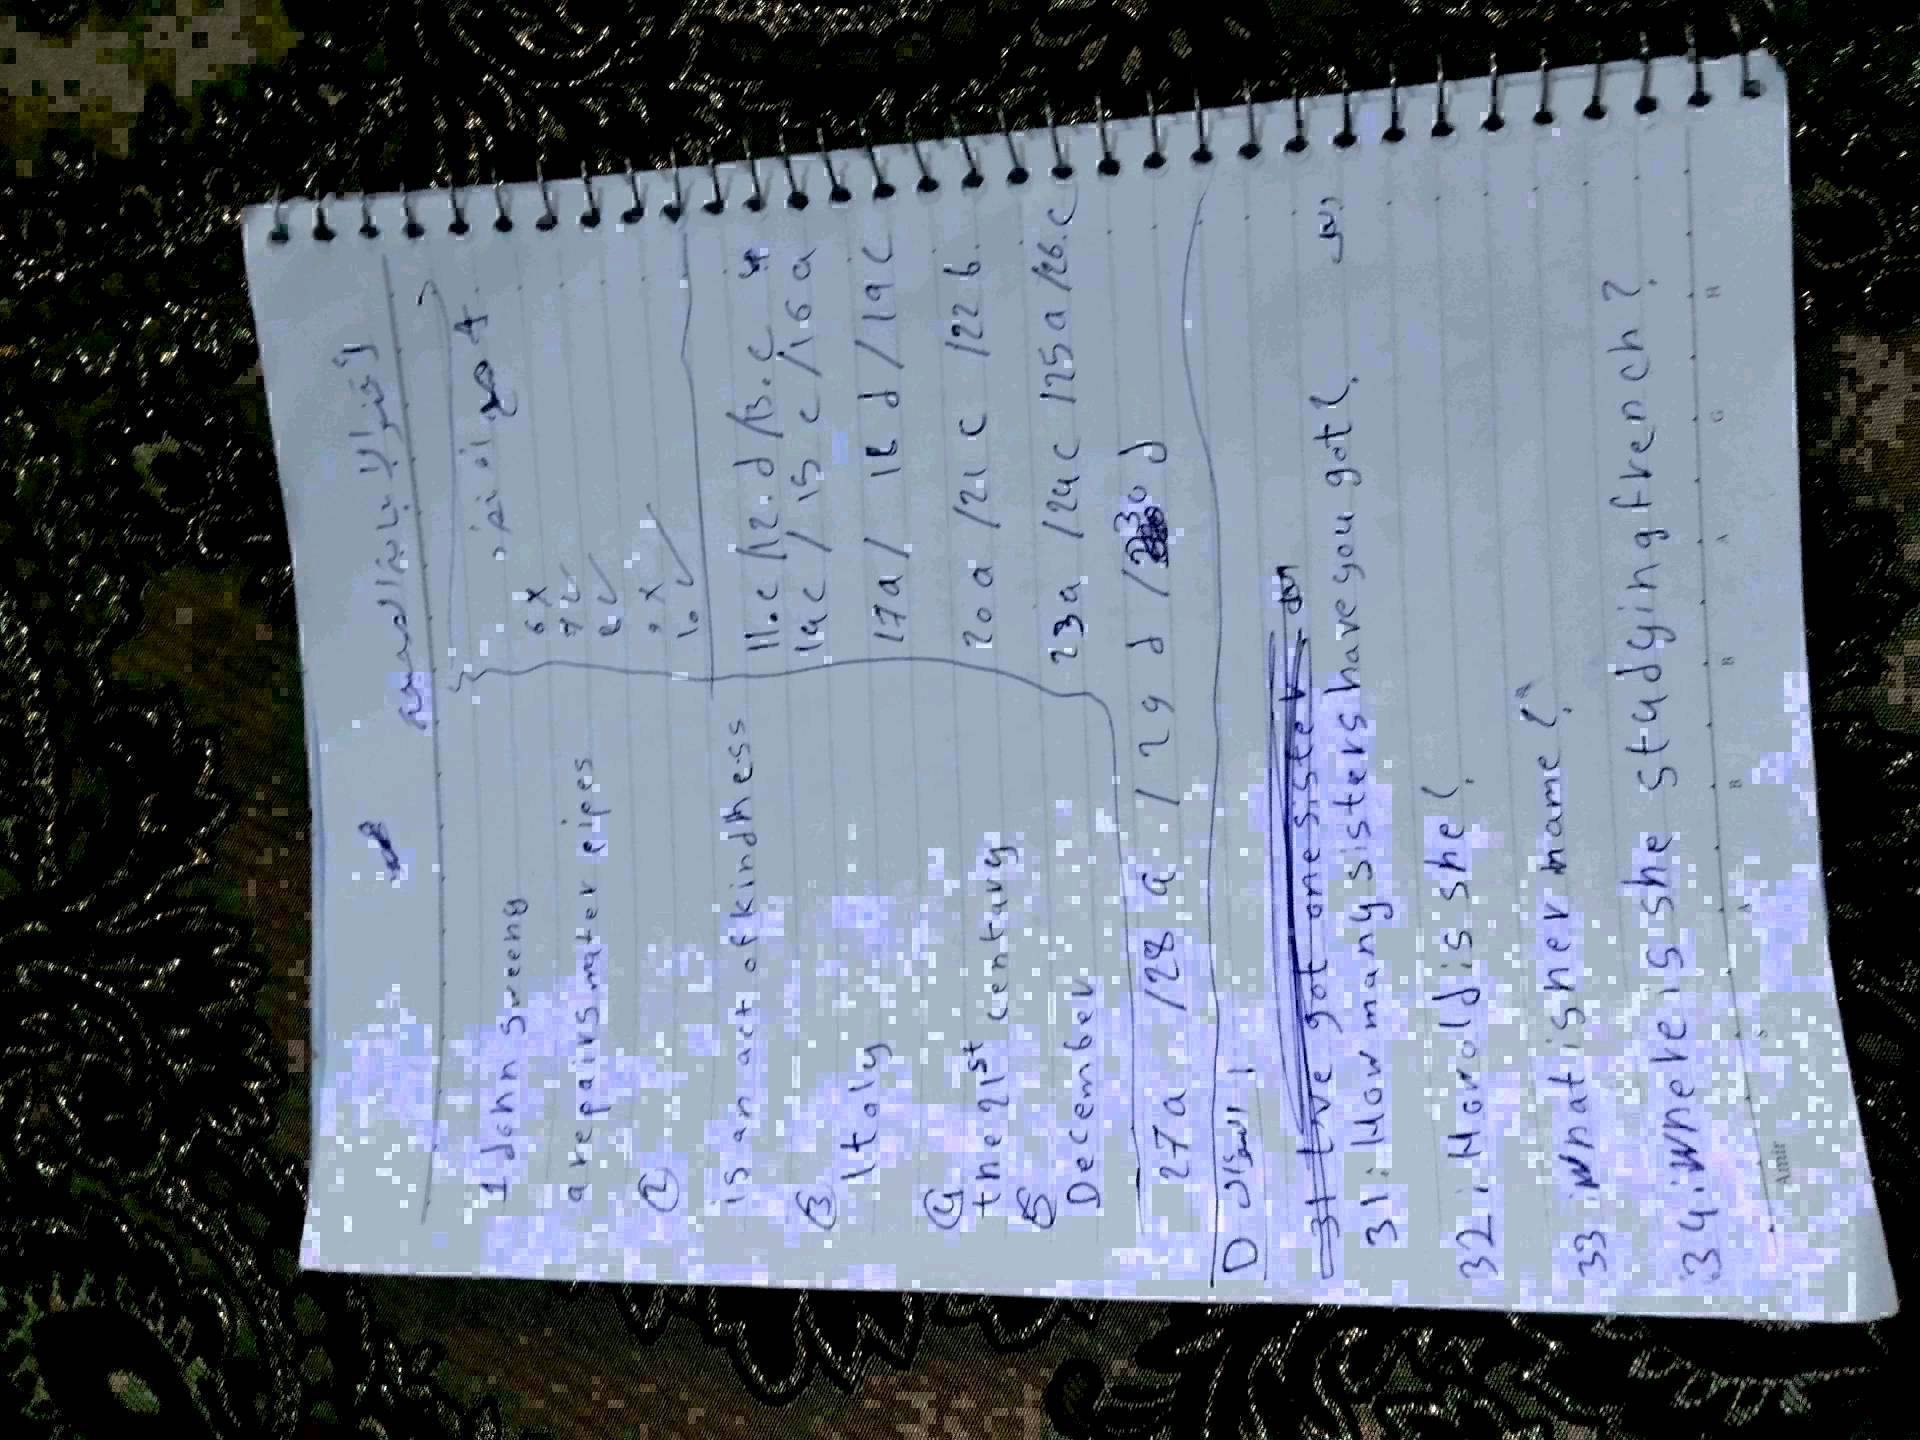 1 John Sweeny
a repairs water pipes
②
is an act of kindness
③
Italy
④
the 21st century
5
December
6 X
7 ✓
8 ✓
9 X
10 ✓
11.c / 12.d / 13.c
14c / 15 c / 16 a
17a / 18 d / 19 c
20a / 21 c / 22 b
23a / 24c / 25a / 26.c
27a / 28 a / 29 d / 30 d
D السؤال
31 I,ve got one sister
31: How many sisters have you got?
32: How old is she?
33: What is her name?
34: Where is she studying french?
Amir
S A B B A G H